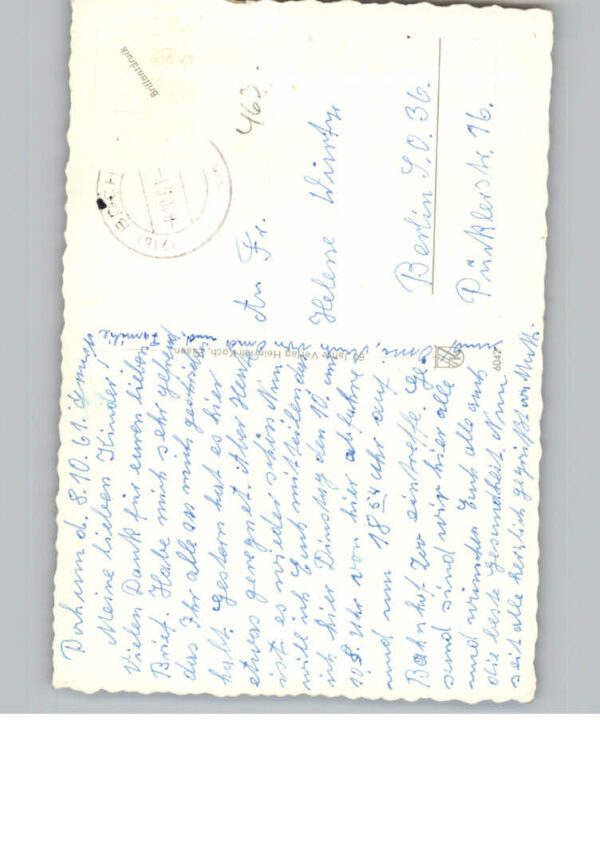 Bochum d. 8.10.61.
Meine lieben Kinder!
Vielen Dank für euren lieben
Brief. Habe mich sehr gefreut
das Ihr alle an mich gedacht
habt. Gestern hat es hier
etwas geregnet. Aber Heute
ist es wieder schön. Nun
will ich Euch mitteilen das
ich hier Dienstag den 10. um
Uhr von hier abfahre
und um 18 54 Uhr auf
Bahnhof Zoo eintreffe. Ge-
sund sind wir hier alle
und wünschen Euch alle auch
die beste Gesundheit. Nun
seit alle herzlich gegrüßt von Mutti.
Familie
60 Jahre Verlag Heinrich Koch, Essen
6042
Brillantdruck
463.
BOCH
(21b)
An Fr.
Helene
Berlin S.O. 36.
Pücklerstr. 16.